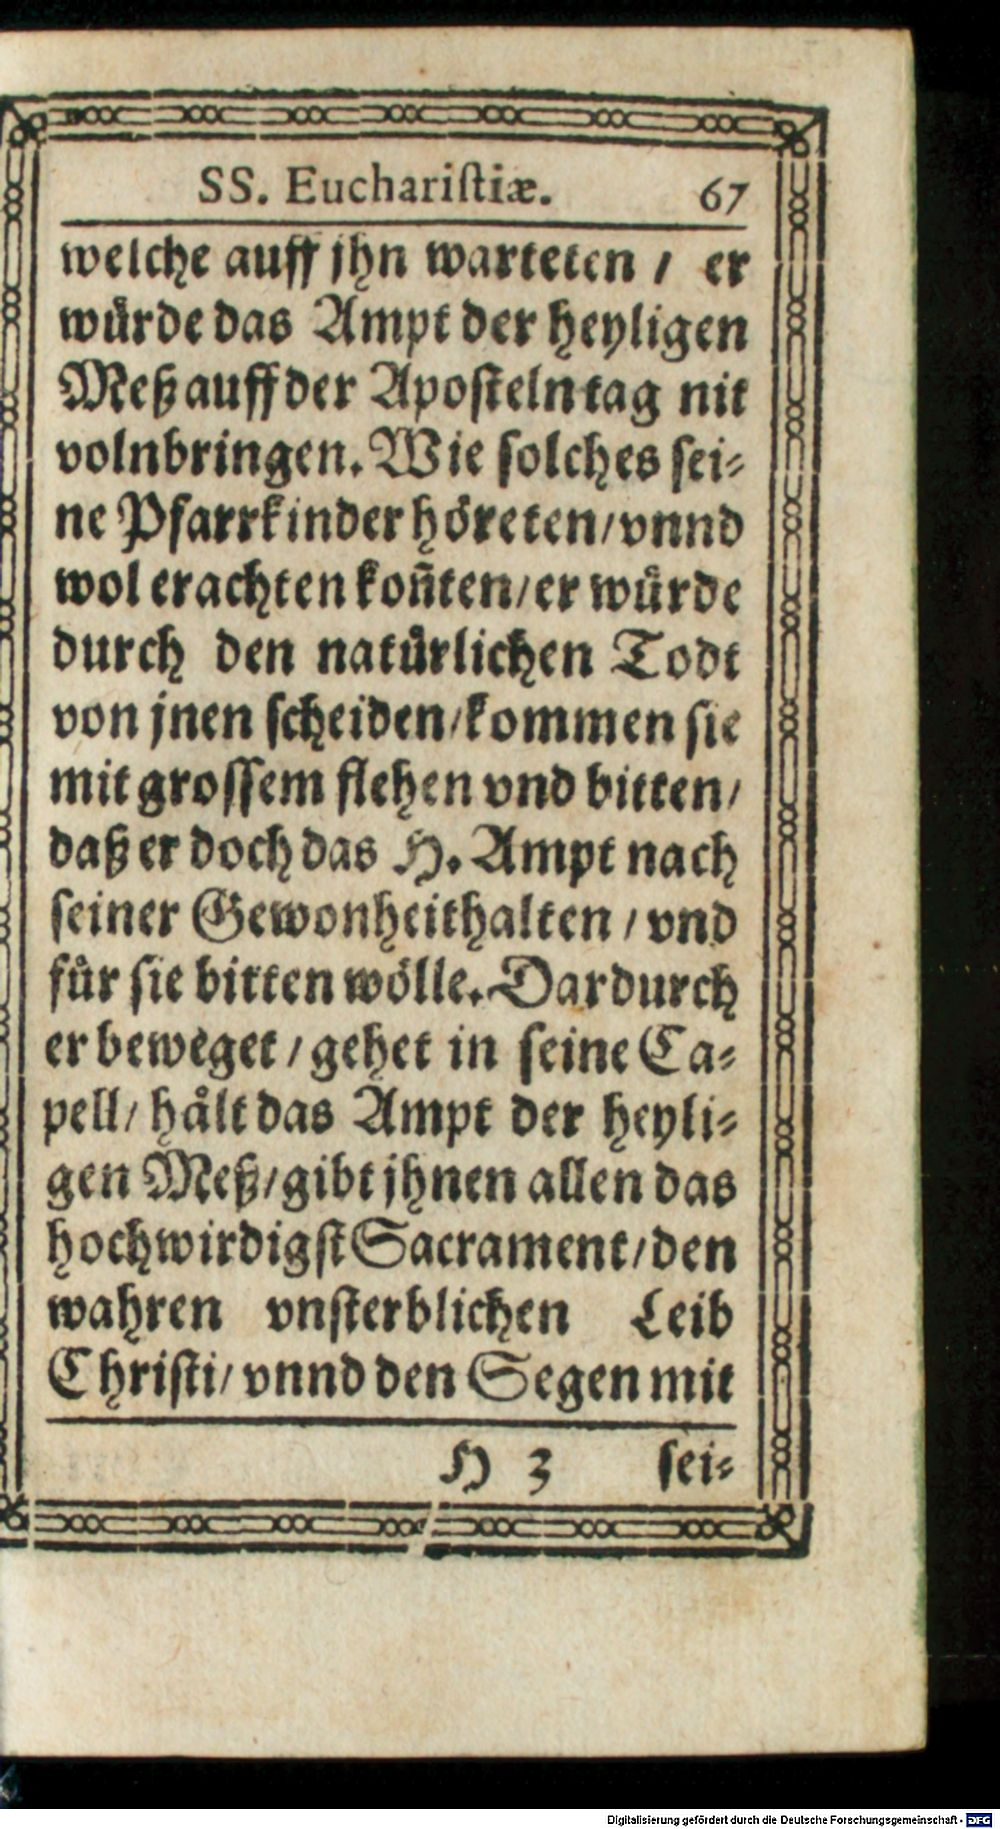 SS. Euchariſtiæ. 67
welche auff jhn warteten / er
wuͤrde das Ampt der heyligen
Meß auff der Apoſtelntag nit
volnbringen. Wie ſolches ſei⸗
ne Pfarrkinder hoͤreten/vnnd
wol erachten koñten/er wuͤrde
durch den natuͤrlichen Todt
von jnen ſcheiden/kommen ſie
mit groſſem flehen vnd bitten/
daß er doch das H. Ampt nach
ſeiner Gewonheit halten / vnd
fuͤr ſie bitten woͤlle. Dardurch
er beweget / gehet in ſeine Ca⸗
pell/ haͤlt das Ampt der heyli⸗
gen Meß/gibt jhnen allen das
hochwirdigſt Sacrament/den
wahren vnſterblichen Leib
Chriſti/ vnnd den Segen mit
H 3 ſei⸗
Digitalisierung gefördert durch die Deutsche Forschungsgemeinschaft - DFG